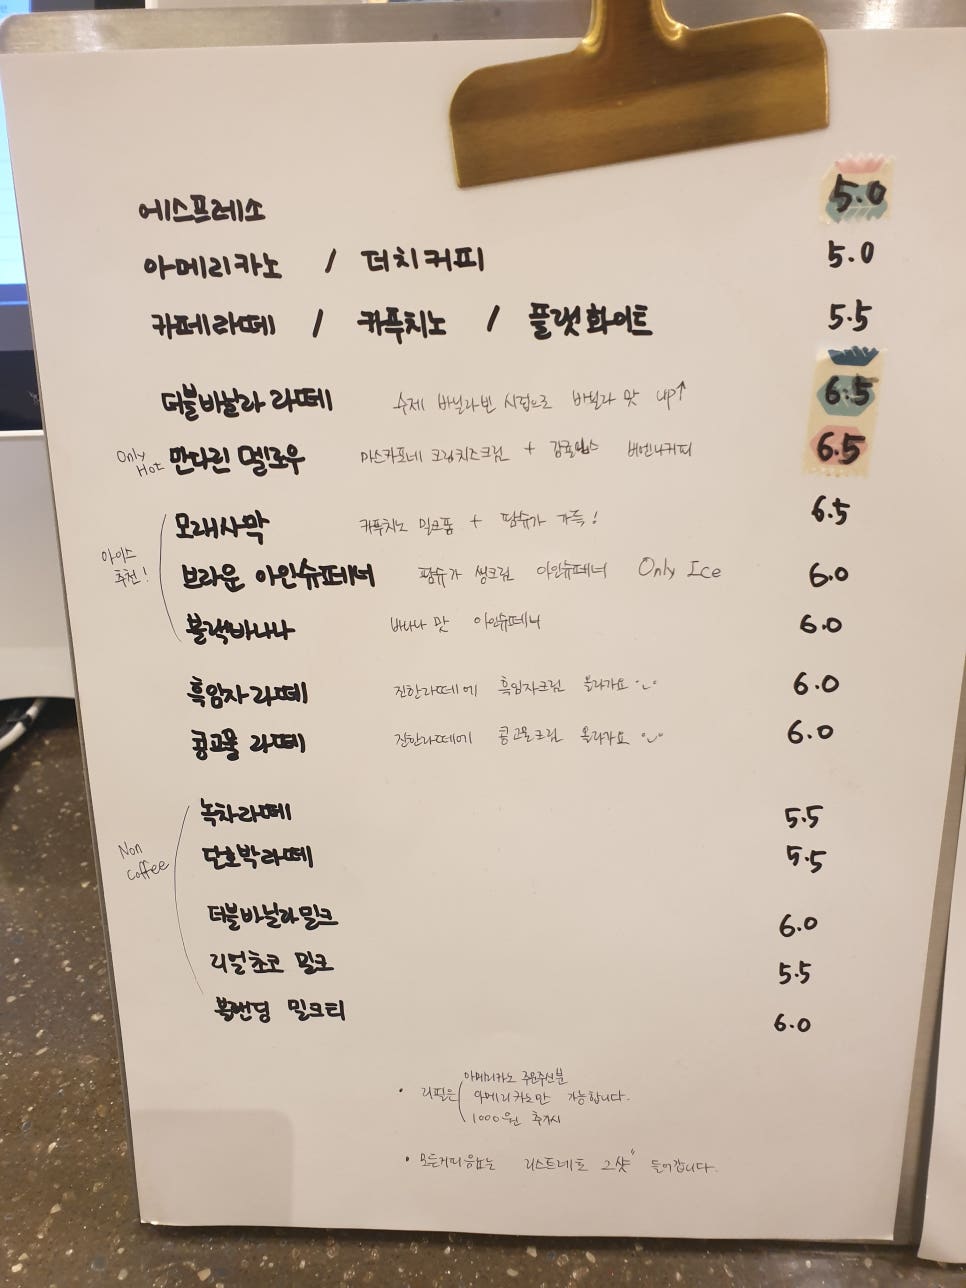 에스프레소 5.0
아메리카노 / 더치커피 5.0
카페라떼 / 카푸치노 / 플랫화이트 5.5
더블바닐라 라떼 수제 바닐라빈 시럽으로 바닐라 맛 up↑ 6.5
Only Hot 만다린 멜로우 마스카포네 크림치즈크림 + 감귤 비엔나커피 6.5
모래사막 카푸치노 밀크폼 + 팜슈가 가득! 6.5
아이스 추천!
브라운 아인슈페너 팜슈가 생크림 아인슈페너 Only Ice 6.0
블랙바나나 바나나 맛 아인슈페너 6.0
흑임자 라떼 진한라떼에 흑임자크림 올라가요 6.0
콩고물 라떼 진한라떼에 콩고물크림 올라가요 6.0
녹차라떼 5.5
Non coffee
단호박라떼 5.5
더블바닐라밀크 6.0
리얼초코 밀크 5.5
블랜딩 밀크티 6.0
아메리카노 주문주신분
• 리필은 아메리카노만 가능합니다.
1000원 추가시
• 모든커피음료는 리스트레토 "2샷" 들어갑니다.